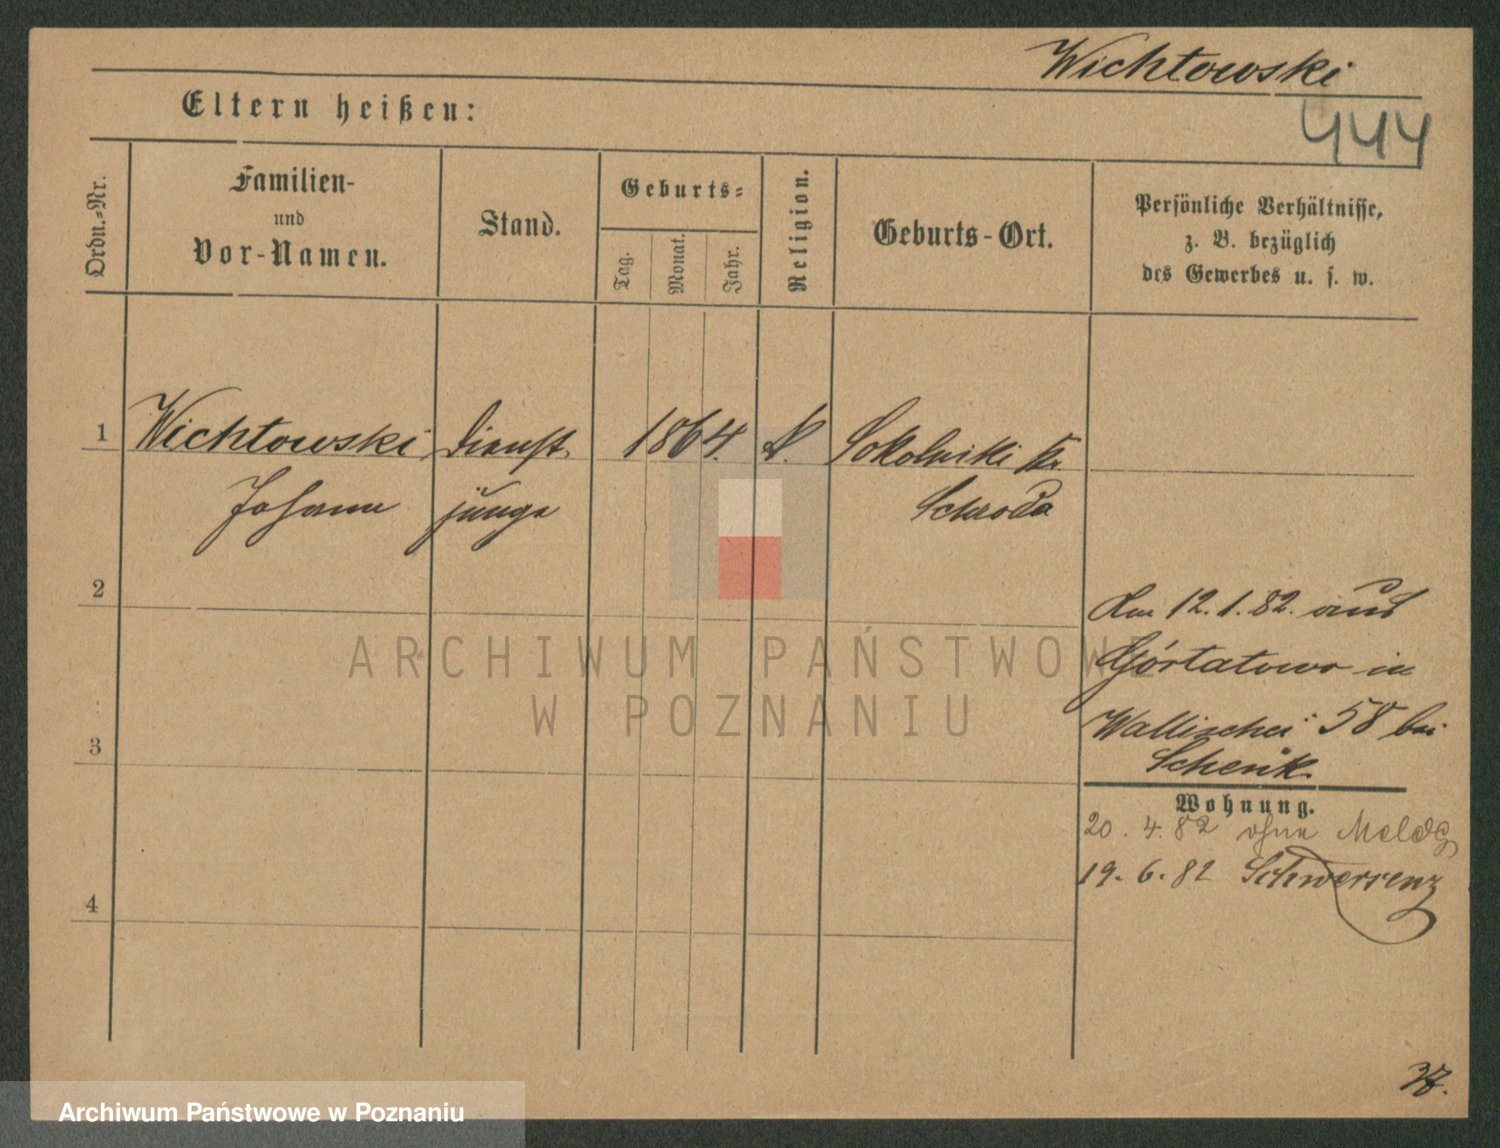 Wichtowski
444
Eltern heißen:
Ordn.-Nr.
Familien-
und
Vor-Namen.
Stand.
Geburts-
Tag.
Monat.
Jahr.
Religion.
Geburts-Ort.
Persönliche Verhältnisse,
z. B. bezüglich
des Gewerbes u. s. w.
1 Wichtowski Dienst 1864. Sokolniki Kr.
Johann junge Schroda
2
12.1.82. aus
Górtatowo in
3 Wallischei 58 bei
Schenk.
Wohnung.
20. 4. 82 ohne Meldg
19. 6. 82 Schwersenz
4
ARCHIWUM PAŃSTWOWE
W POZNANIU
Archiwum Państwowe w Poznaniu